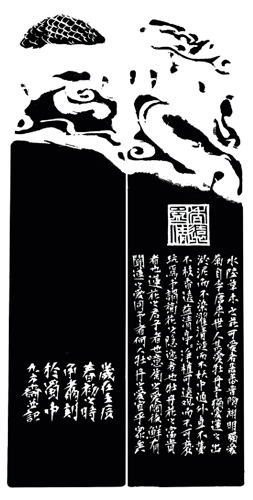 香遠益清
水陸草木之花可愛者甚蕃晉陶淵明獨愛
菊自李唐來世人甚愛牡丹予獨愛蓮之出
淤泥而不染濯清漣而不妖中通外直不蔓
不枝香遠益清亭亭淨植可遠觀而不可褻
玩焉予謂菊花之隱逸者也牡丹花之富貴
者也蓮花之君子者也噫菊之愛陶後鮮有
聞蓮之愛同予者何人牡丹之愛宜乎眾矣
歲在壬辰
春初時
刻
於蜀中
記